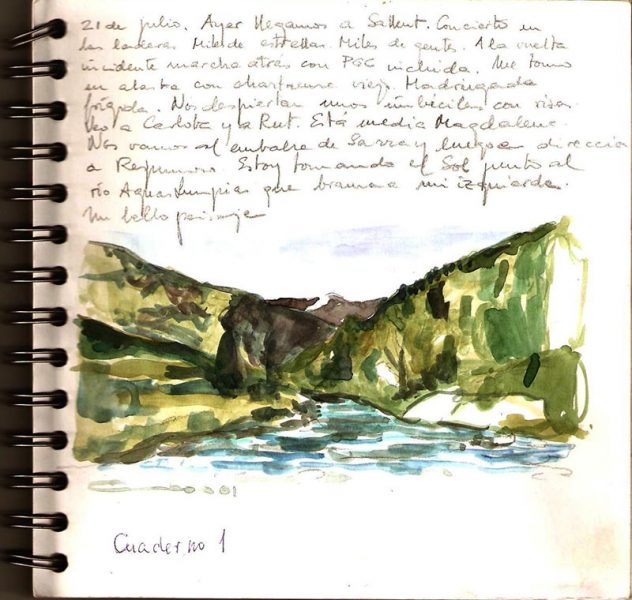 21 de julio. Ayer llegamos a Sallent. Concierto en
las laderas. Miles de estrellas. Miles de gentes. A la vuelta
incidente marcha atrás con incluida. Me tomo
un con chartreuse viejo. Madrugada
frígida. Nos despiertan unos imbéciles con risas.
Veo a y la Rut. Está media Magdalena.
Nos vamos al embalse de Sarra y luego en dirección
a Respumoso. Estoy tomando el Sol junto al
río Aguaslimpias que brama a mi izquierda.
Un bello paisaje
Cuaderno 1